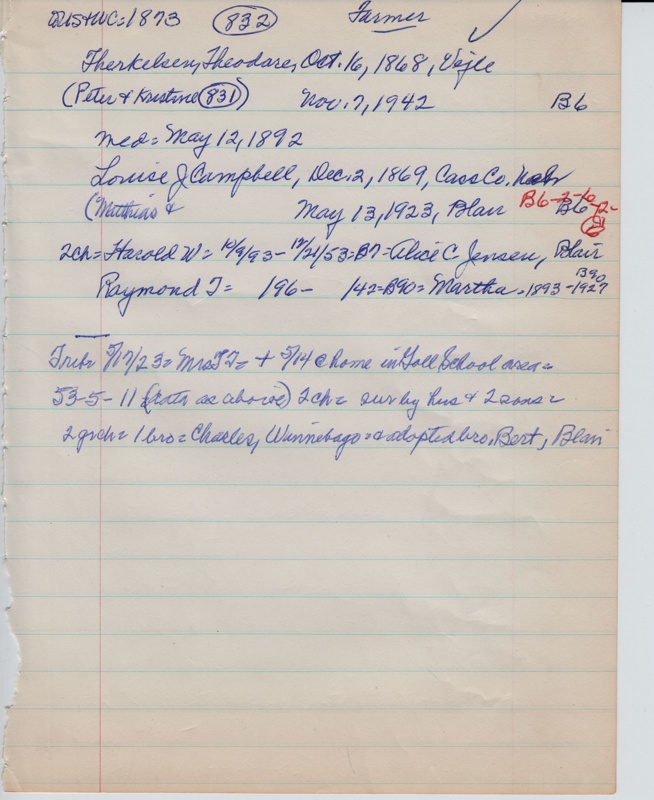 US+WC=1873 832 Farmer ✓
Therkelsen, Theodore, Oct. 16, 1868, Vejle
(Peter & Kristine 831) Nov. 7, 1942 B6
med= May 12, 1892
Louise J Campbell, Dec. 2, 1869, Cass Co. Nebr
(Matthias & May 13, 1923, Blair B6
2ch= Harold W= 10/9/93- 12/21/53=B7= Alice C Jensen, Blair
Raymond T= 196- 142=B90= Martha. 1893-1927 B90
Trib= 5/17/23= Mrs TT= + 5/14 @ home in Goll School area=
53-5-11 (data as above) 2ch= sur by hus & 2 sons=
2 grch= 1 bro= Charles, Winnebago= & adopted bro, Bert, Blair